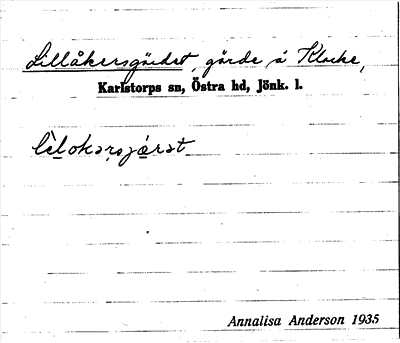 Lillåkersgärdet, gärde å Klocke,
Karlstorps sn, Östra hd, Jönk. l.
Annalisa Anderson 1935